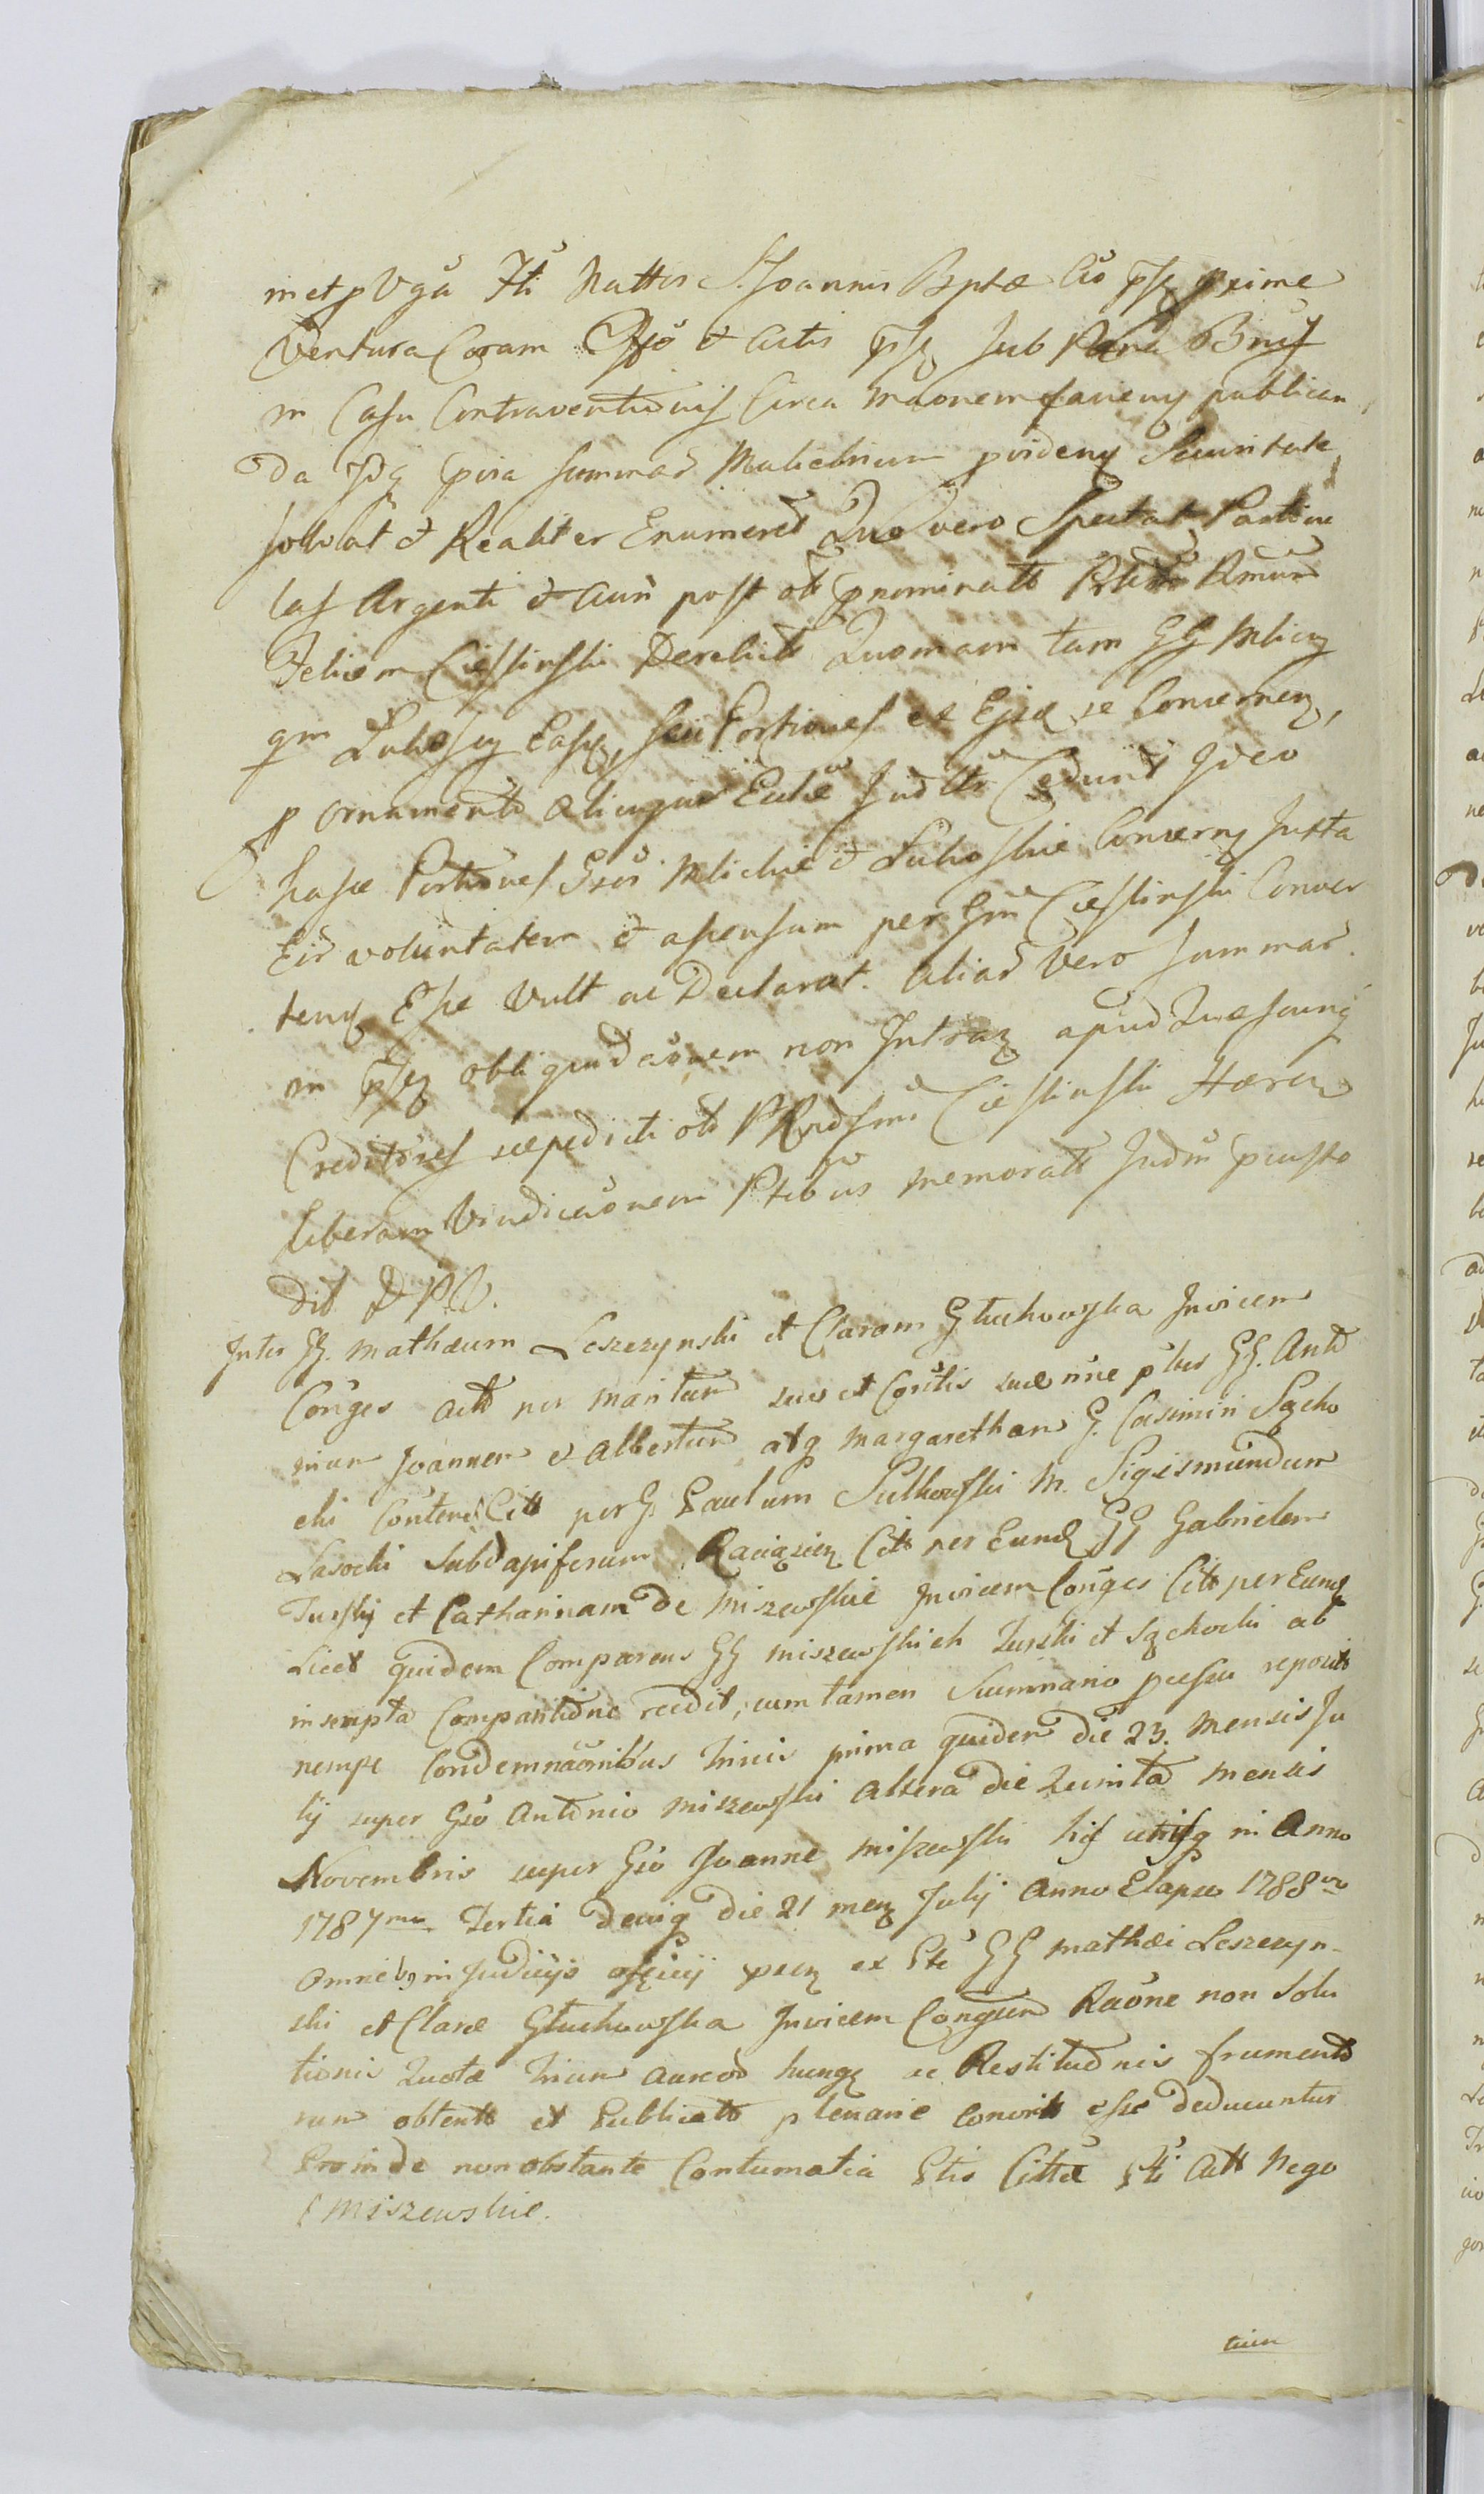 met p Vgā Fti Nattis S. Joannis Bptæ Cuō pſ prime
Ventura Coram Offō & Actis pſ sub Pæna Bniſ
in Casu Contraventionis Circa maonem faciens publican
da Idq cūria summas Mulebrium pvidens Securitate
solvat & Realiter Enumeret Quo vero Spectat Particu
las Argenti & Auri post ob pnominati
Felicem Cieslinski Derelicts Quoniam tam GG Mlicz
qm Lukoscz Easq, seu Portiones ex Ejsæ se Concernen,
p ornamento alicujus Eccliæ Judltr Cedunt Ideo
hasce Portiones Gsos Mlickie & Lukoskie Concerns Juxta
Eor voluntatem & assensum per Gm Cieslinski Conver
tens Esse Vult ac Declarat. Alias Vero summas
in pſ obligundaonem non Intraz apud Quascunq
Creditores sæpedicti ob PRndſmi Cieslinski Hæren
Liberam Vindicaonem Ptibus memorats Judm pcusto
dit D.P.V.
Inter GG. Mathæum Leszczynski et Claram Głuchowska Invicem
Conges Acts per maritum suo et Contis suæ nne ptus GG. Anto
nium Joannem & Albertum atq Margaretham G. Casimiri Szcho
cki Contem Cits per G. Paulum Sulkowski M. Sigismundum
Lasocki Subdapiferum Raciązien Cits per Eund GG Gabrielem
Turskj et Catharinam de Miszewskie Invicem Conges Cits per Eund
Licet quidem Comparens GG Miszewskich Turski et Szchocki ab
inscripta Comparitione recedit, cum tamen Summario pcessu reposito
nempe Condemnaonibus Trinis prima quidem die 23. Mensis Ju
lij super Gso Antonio Miszewski Altera die Quinta Mensis
Novembris super Gso Joanne Miszewski his utrisq in Anno
1787mo Tertia deniq die 21 mens Julij Anno Elapso 1788vo
Omnibq in Judicijs officij ex Pte GG Mathæi Leszczyn-
ski et Claræ Głuchowska Invicem Congum Raone non Solu
tionis Quotæ Trium Aureos hung ac Restitutnis frumento
rum obtents et Publicats plenarie convicts esse deducuntur
Proinde non obstante Contumatia Ptis Cittæ Pti Acts Nego
Miszewskie.
tium